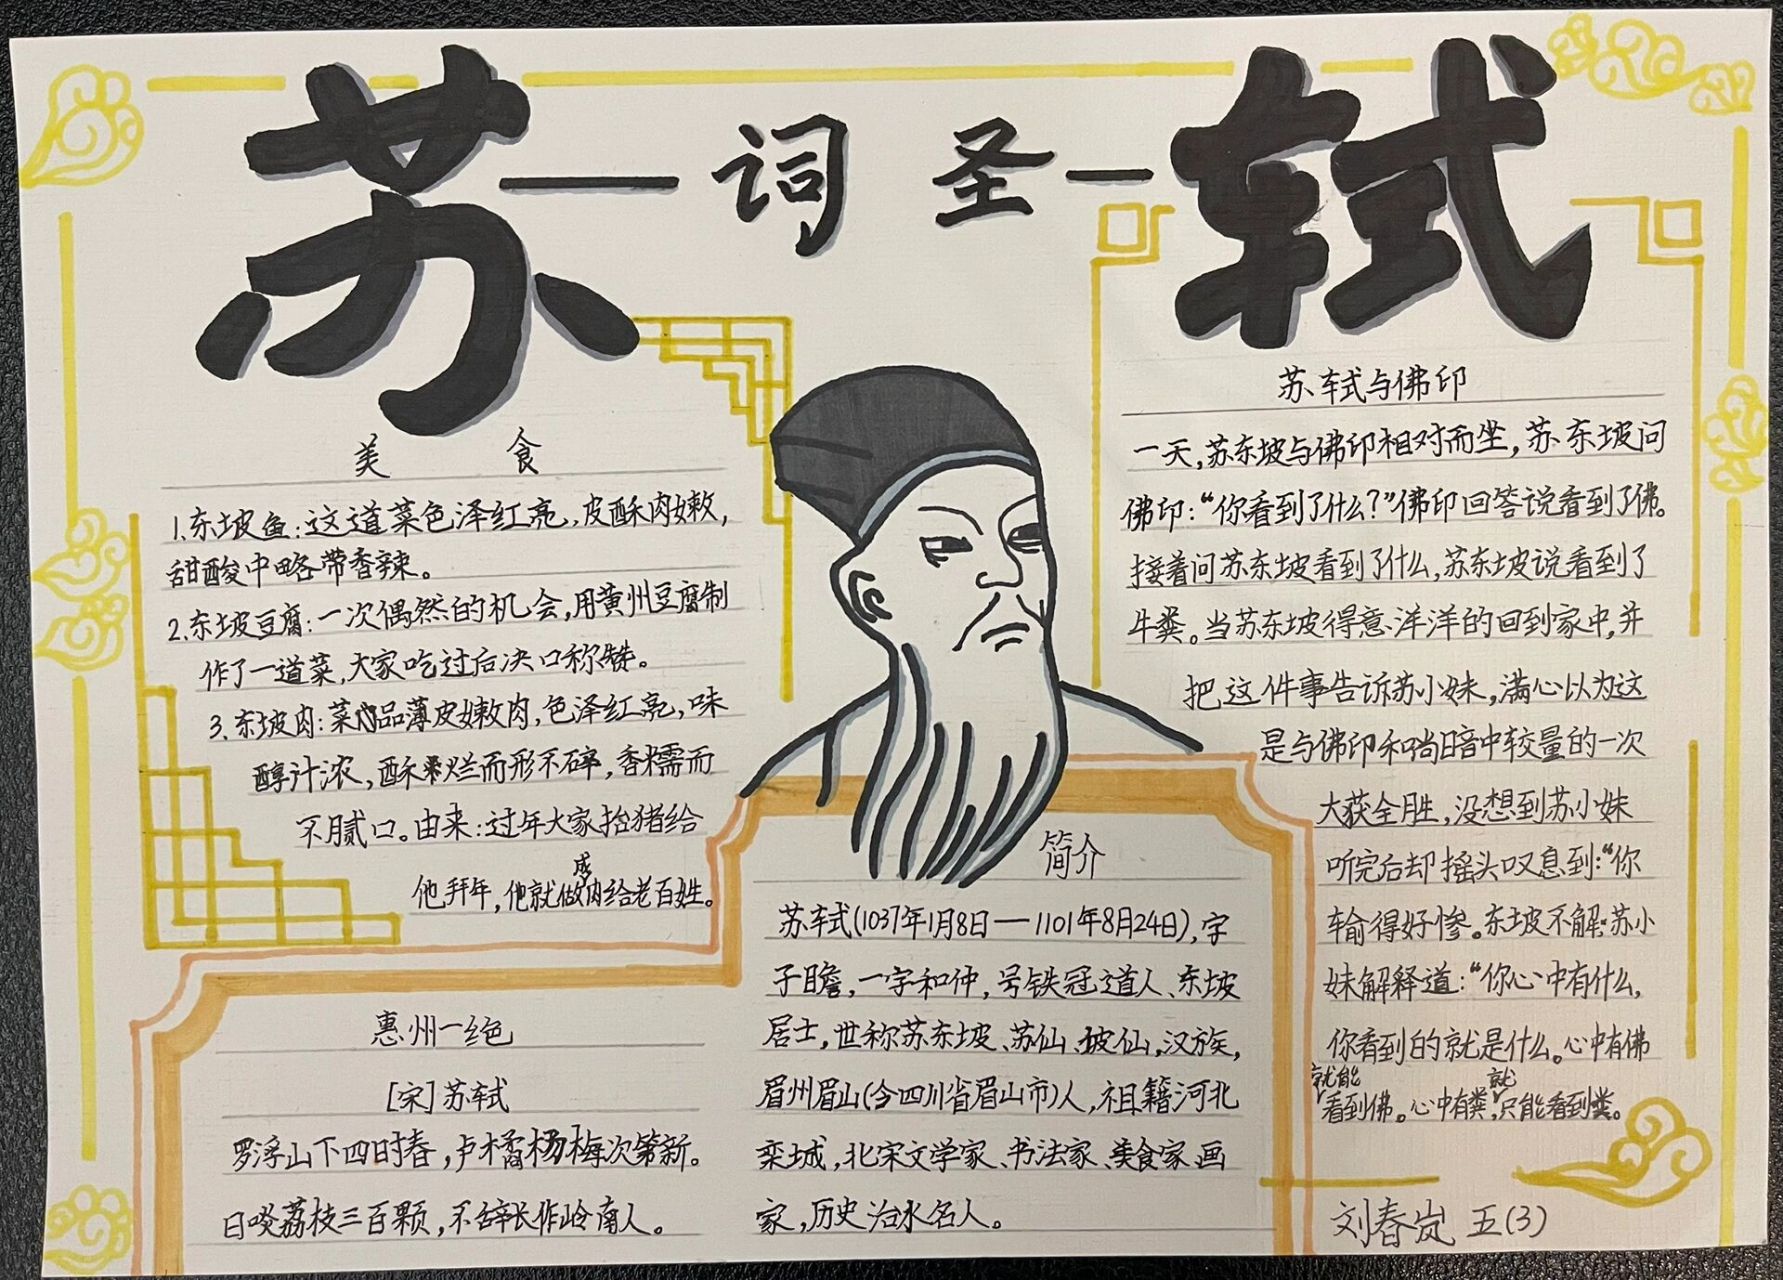 苏—词圣—轼
美食
1.东坡鱼：这道菜色泽红亮，皮酥肉嫩，
甜酸中略带香辣。
2.东坡豆腐：一次偶然的机会，用黄州豆腐制
作了一道菜，大家吃过后决口称赞。
3、东坡肉：菜品薄皮嫩肉，色泽红亮，味
醇汁浓，酥烂而形不碎，香糯而
不腻口。由来：过年大家抬猪给
他拜年，他就做成肉给老百姓。
苏轼与佛印
一天，苏东坡与佛印相对而坐，苏东坡问
佛印：“你看到了什么？”佛印回答说看到了佛。
接着问苏东坡看到了什么，苏东坡说看到了
牛粪。当苏东坡得意洋洋的回到家中，并
把这件事告诉苏小妹，满心以为这
是与佛印和尚暗中较量的一次
大获全胜，没想到苏小妹
听完后却摇头叹息到：“你
输得好惨。东坡不解，苏小
妹解释道：“你心中有什么，
你看到的就是什么。心中有佛
就能看到佛。心中有粪，就只能看到粪。
惠州一绝
[宋]苏轼
罗浮山下四时春，卢橘杨梅次第新。
日啖荔枝三百颗，不辞长作岭南人。
简介
苏轼(1037年1月8日—1101年8月24日)，字
子瞻，一字和仲，号铁冠道人、东坡
居士，世称苏东坡、苏仙、坡仙，汉族，
眉州眉山(今四川省眉山市)人，祖籍河北
栾城，北宋文学家、书法家、美食家、画
家，历史治水名人。
刘春岚 五(3)